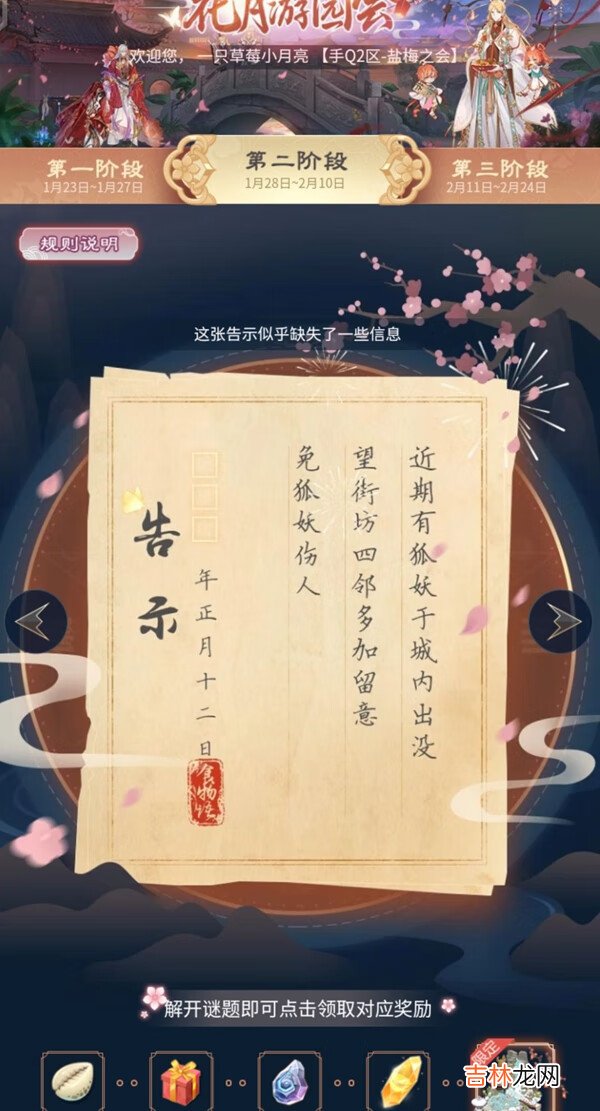 花月游园会
欢迎您，一只草莓小月亮 【手Q2区-盐梅之会】
第一阶段
1月23日~1月27日
第二阶段
1月28日~2月10日
第三阶段
2月11日~2月24日
规则说明
这张告示似乎缺失了一些信息
近期有狐妖于城内出没
望街坊四邻多加留意
免狐妖伤人
□□□年正月十二日
食物语
告示
解开谜题即可点击领取对应奖励
限定
吉林龙网